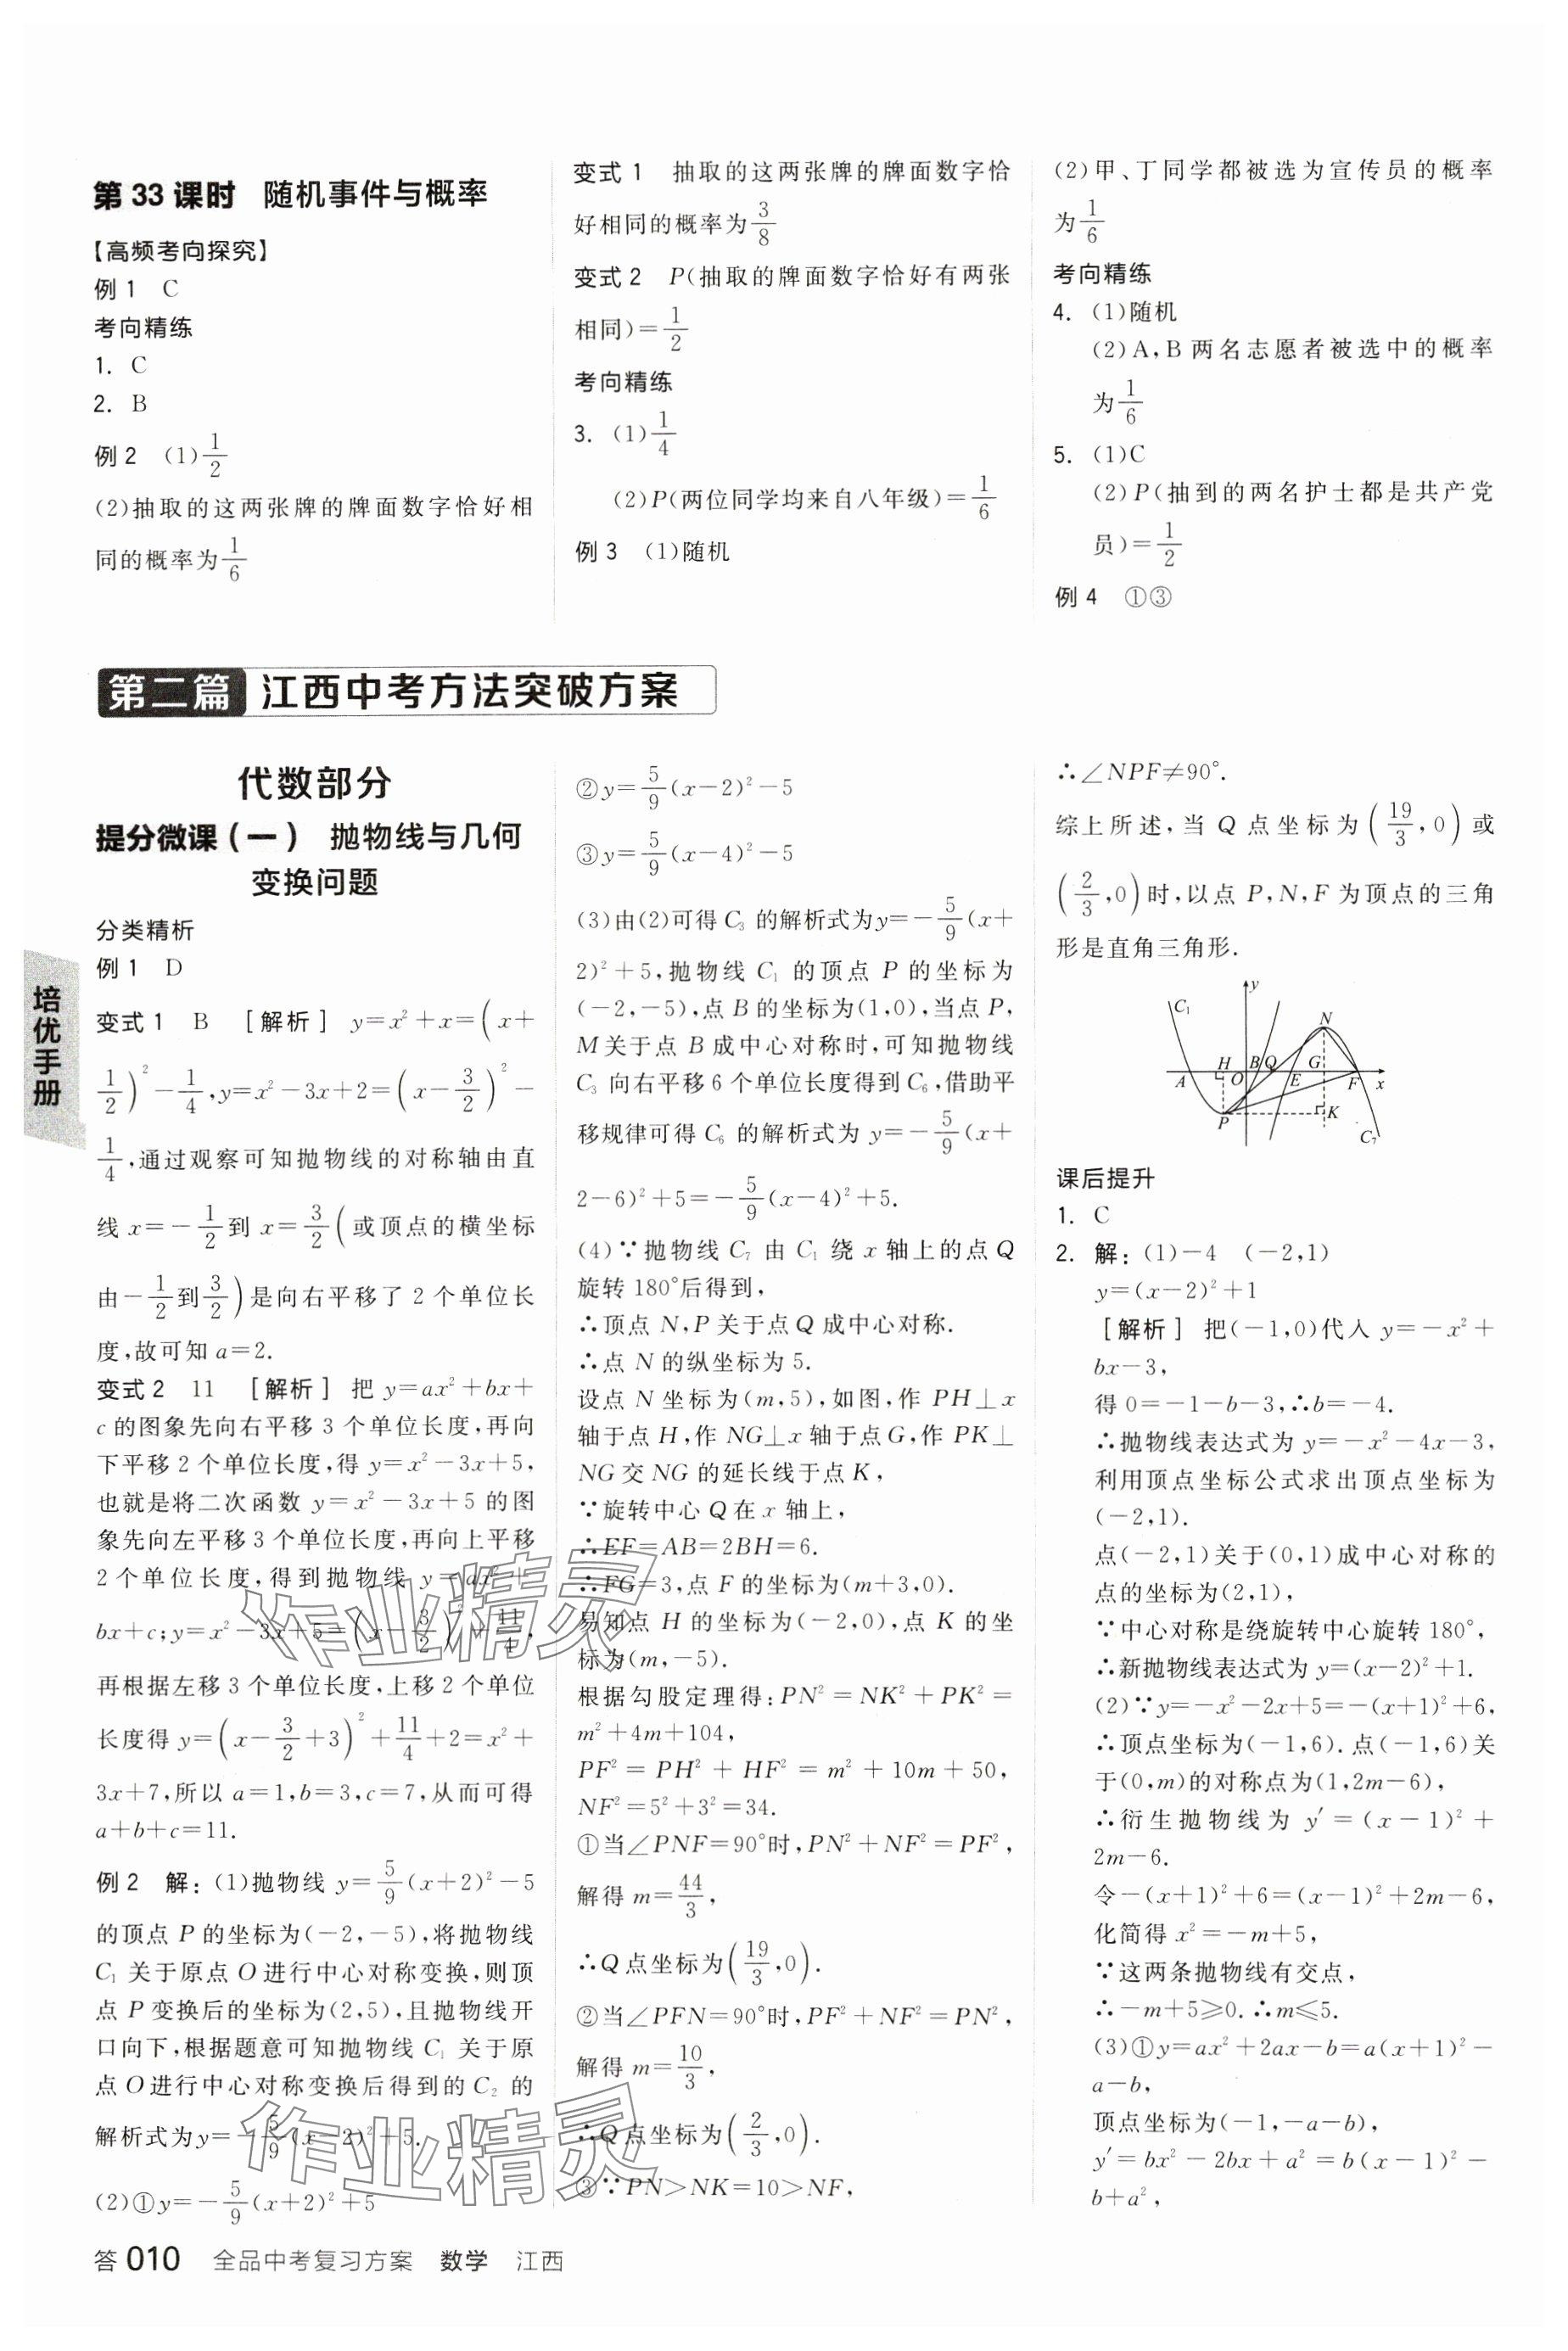 第 33 课时　随机事件与概率
【高频考向探究】
例 1　C
考向精练
1.　C
2.　B
例 2　(1)1/2
(2)抽取的这两张牌的牌面数字恰好相
同的概率为1/6
变式 1　抽取的这两张牌的牌面数字恰
好相同的概率为3/8
变式 2　P(抽取的牌面数字恰好有两张
相同)=1/2
考向精练
3.　(1)1/4
(2)P(两位同学均来自八年级)=1/6
例 3　(1)随机
(2)甲、丁同学都被选为宣传员的概率
为1/6
考向精练
4.　(1)随机
(2)A,B 两名志愿者被选中的概率
为1/6
5.　(1)C
(2)P(抽到的两名护士都是共产党
员)=1/2
例 4　①③
第二篇　江西中考方法突破方案
代数部分
提分微课(一)　抛物线与几何
变换问题
分类精析
例 1　D
变式 1　B　[解析]　y=x²+x=(x+
1/2)²-1/4,y=x²-3x+2=(x-3/2)²-
1/4,通过观察可知抛物线的对称轴由直
线 x=-1/2到 x=3/2(或顶点的横坐标
由-1/2到3/2)是向右平移了 2 个单位长
度,故可知 a=2.
变式 2　11　[解析]　把 y=ax²+bx+
c 的图象先向右平移 3 个单位长度,再向
下平移 2 个单位长度,得 y=x²-3x+5,
也就是将二次函数 y=x²-3x+5 的图
象先向左平移 3 个单位长度,再向上平移
2 个单位长度,得到抛物线 y=ax²+
bx+c;y=x²-3x+5=(x-3/2)²+11/4,
再根据左移 3 个单位长度,上移 2 个单位
长度得 y=(x-3/2+3)²+11/4+2=x²+
3x+7,所以 a=1,b=3,c=7,从而可得
a+b+c=11.
例 2　解:(1)抛物线 y=5/9(x+2)²-5
的顶点 P 的坐标为(-2,-5),将抛物线
C₁ 关于原点 O 进行中心对称变换,则顶
点 P 变换后的坐标为(2,5),且抛物线开
口向下,根据题意可知抛物线 C₁ 关于原
点 O 进行中心对称变换后得到的 C₂ 的
解析式为 y=-5/9(x-2)²+5.
(2)①y=-5/9(x+2)²+5
②y=5/9(x-2)²-5
③y=5/9(x-4)²-5
(3)由(2)可得 C₃ 的解析式为 y=-5/9(x+
2)²+5,抛物线 C₁ 的顶点 P 的坐标为
(-2,-5),点 B 的坐标为(1,0),当点 P,
M 关于点 B 成中心对称时,可知抛物线
C₃ 向右平移 6 个单位长度得到 C₆,借助平
移规律可得 C₆ 的解析式为 y=-5/9(x+
2-6)²+5=-5/9(x-4)²+5.
(4)∵抛物线 C₇ 由 C₁ 绕 x 轴上的点 Q
旋转 180°后得到,
∴顶点 N,P 关于点 Q 成中心对称.
∴点 N 的纵坐标为 5.
设点 N 坐标为(m,5),如图,作 PH⊥x
轴于点 H,作 NG⊥x 轴于点 G,作 PK⊥
NG 交 NG 的延长线于点 K,
∵旋转中心 Q 在 x 轴上,
∴EF=AB=2BH=6.
∴FG=3,点 F 的坐标为(m+3,0).
易知点 H 的坐标为(-2,0),点 K 的坐
标为(m,-5).
根据勾股定理得:PN²=NK²+PK²=
m²+4m+104,
PF²=PH²+HF²=m²+10m+50,
NF²=5²+3²=34.
①当∠PNF=90°时,PN²+NF²=PF²,
解得 m=44/3,
∴Q 点坐标为(19/3,0).
②当∠PFN=90°时,PF²+NF²=PN²,
解得 m=10/3,
∴Q 点坐标为(2/3,0).
③∵PN>NK=10>NF,
∴∠NPF≠90°.
综上所述,当 Q 点坐标为(19/3,0)或
(2/3,0)时,以点 P,N,F 为顶点的三角
形是直角三角形.
C₁ y N H B Q G A O E F x P K C₇
课后提升
1.　C
2.　解:(1)-4　(-2,1)
y=(x-2)²+1
[解析]　把(-1,0)代入 y=-x²+
bx-3,
得 0=-1-b-3,∴b=-4.
∴抛物线表达式为 y=-x²-4x-3,
利用顶点坐标公式求出顶点坐标为
(-2,1).
点(-2,1)关于(0,1)成中心对称的
点的坐标为(2,1),
∵中心对称是绕旋转中心旋转 180°,
∴新抛物线表达式为 y=(x-2)²+1.
(2)∵y=-x²-2x+5=-(x+1)²+6,
∴顶点坐标为(-1,6).点(-1,6)关
于(0,m)的对称点为(1,2m-6),
∴衍生抛物线为 y′=(x-1)²+
2m-6.
令-(x+1)²+6=(x-1)²+2m-6,
化简得 x²=-m+5,
∵这两条抛物线有交点,
∴-m+5≥0.∴m≤5.
(3)①y=ax²+2ax-b=a(x+1)²-
a-b,
顶点坐标为(-1,-a-b),
y′=bx²-2bx+a²=b(x-1)²-
b+a²,
培优手册
作业精灵
作业精灵
答 010　全品中考复习方案　数学　江西